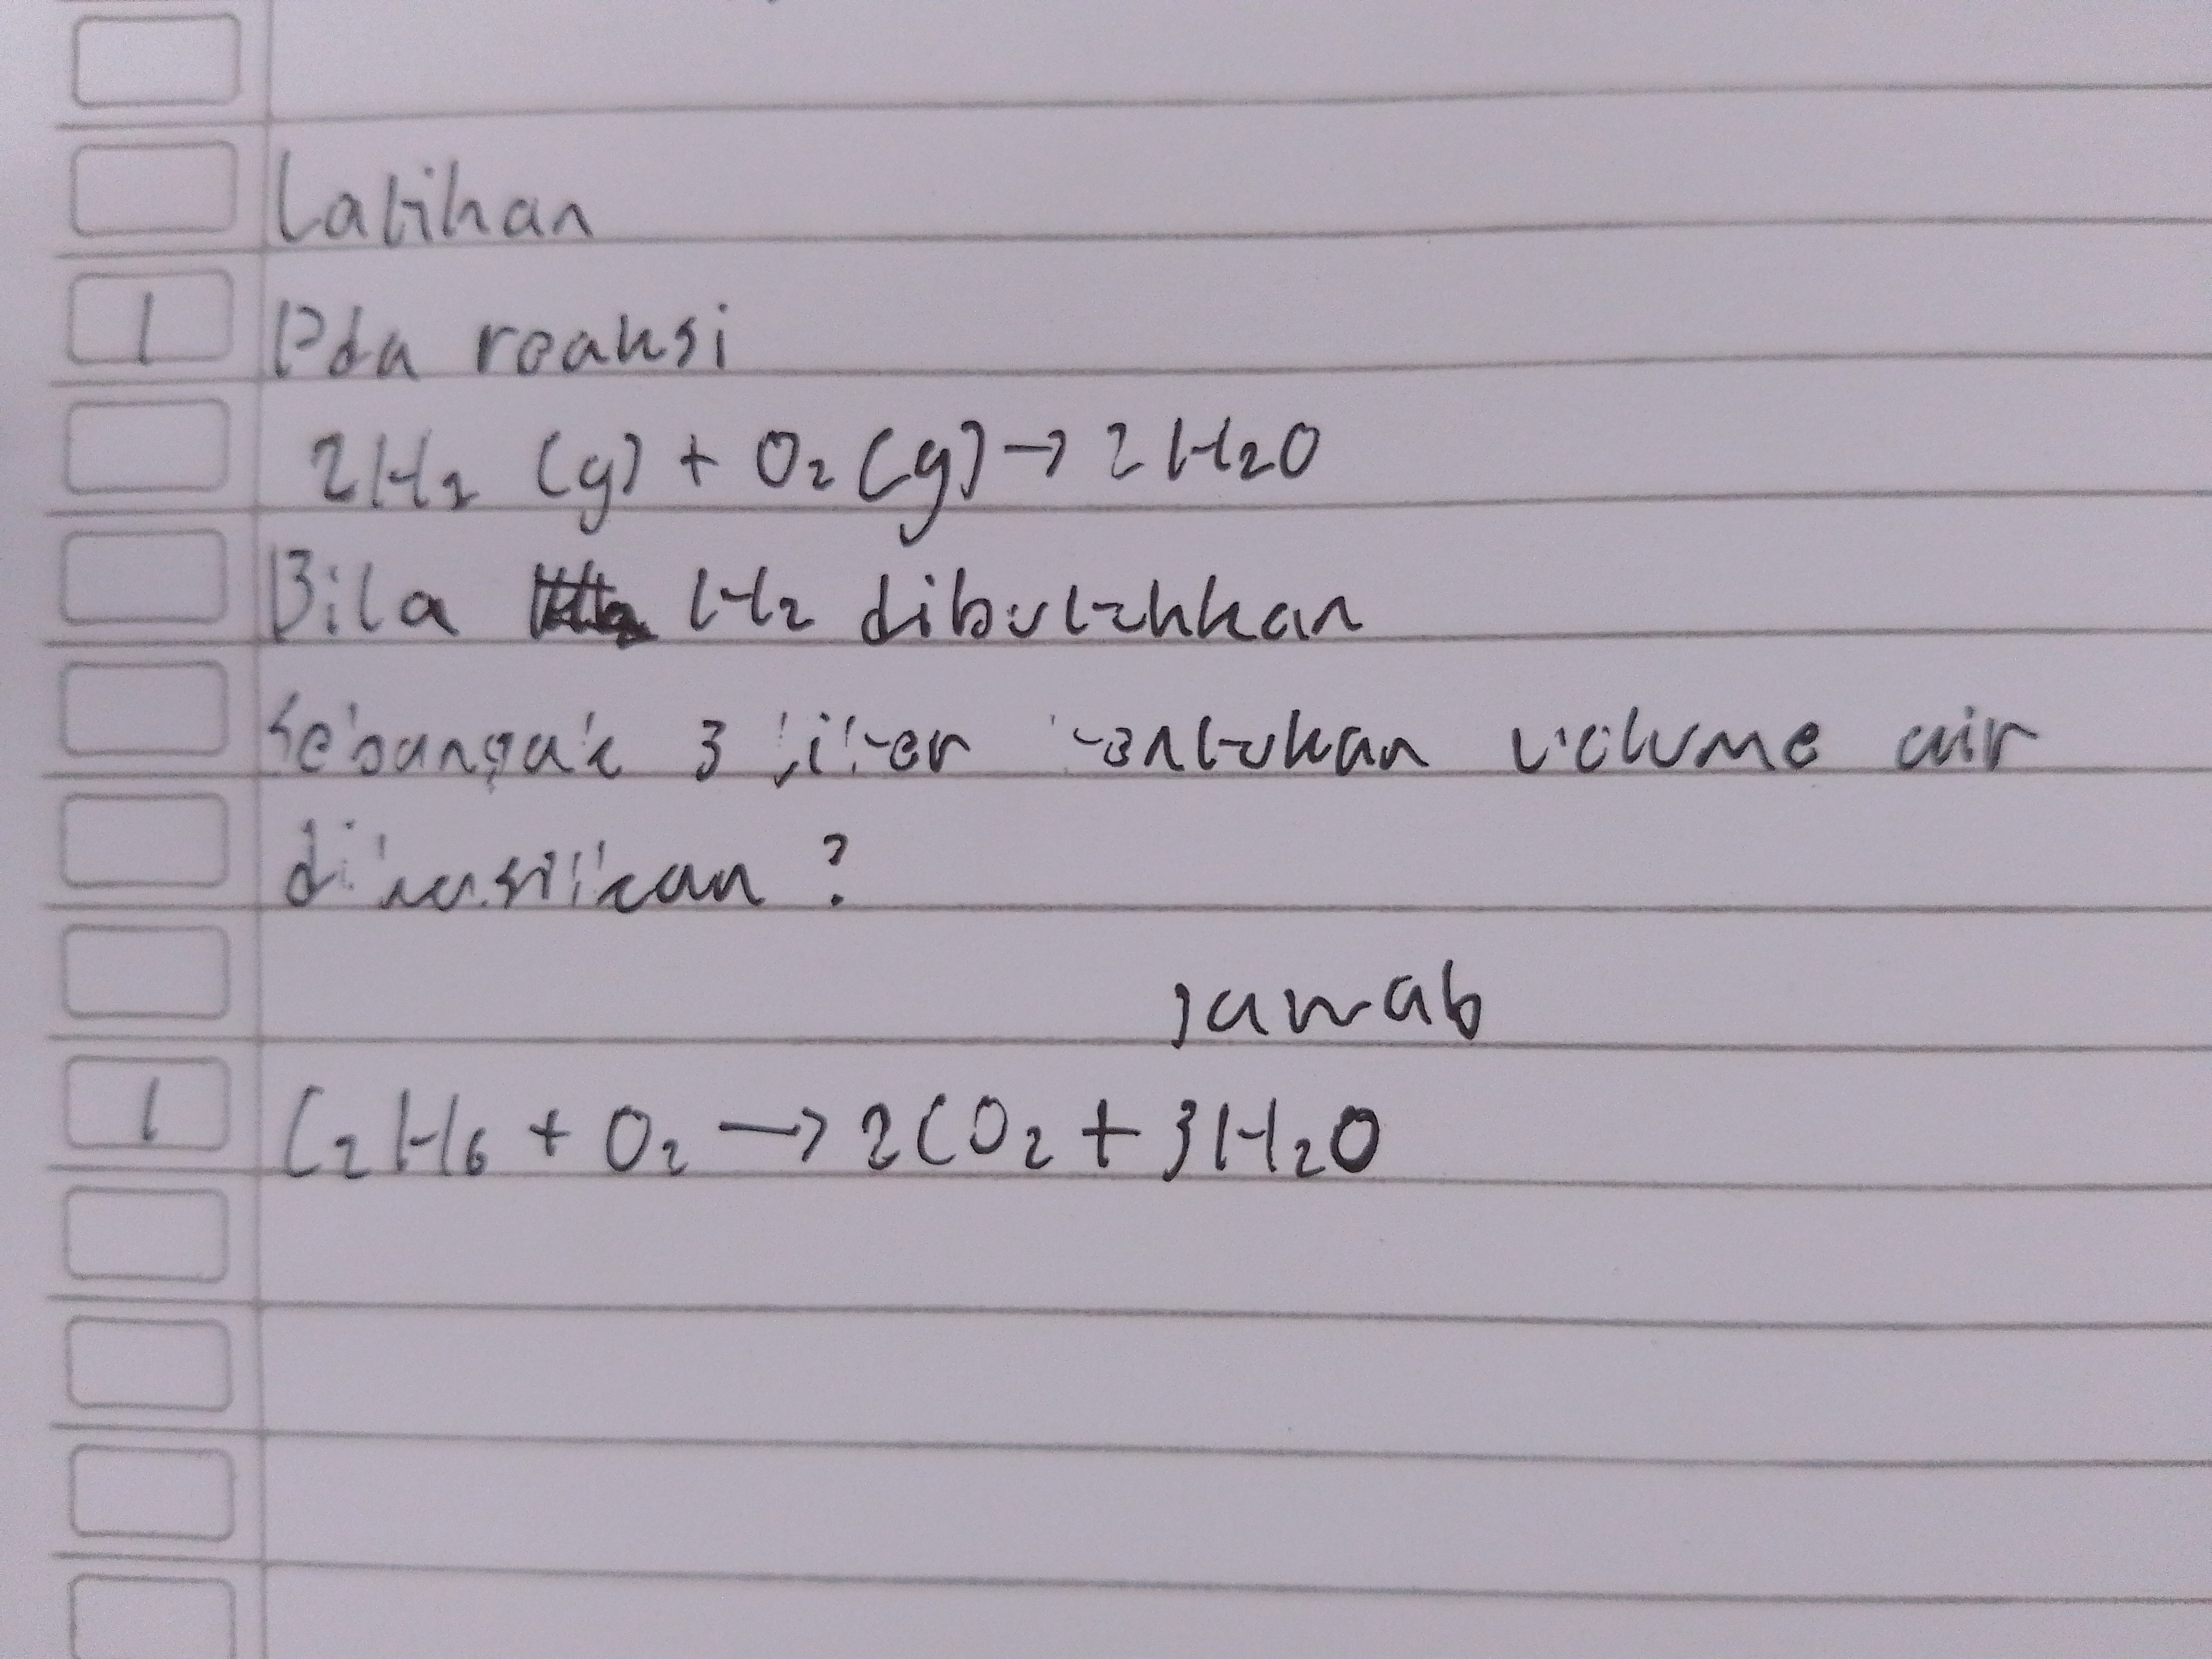 Latihan
1 Pda reaksi
2H₂ (g) + O₂ (g) → 2H₂O
Bila H₂ dibutuhkan
Sebanyak 3 liter tentukan volume air
dihasilkan ?
Jawab
1 C₂H₆ + O₂ → 2CO₂ + 3H₂O